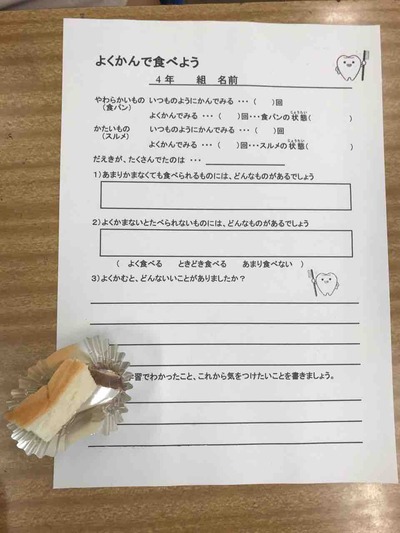 よくかんで食べよう
4年　　組　名前
やわらかいもの　いつものようにかんでみる ・・・（　　）回
（食パン）　よくかんでみる ・・・（　　）回・・・食パンの状態（じょうたい）（　　　　）
かたいもの　いつものようにかんでみる ・・・（　　）回
（スルメ）　よくかんでみる ・・・（　　）回・・・スルメの状態（じょうたい）（　　　　）
だえきが、たくさんでたのは ・・・
1）あまりかまなくても食べられるものには、どんなものがあるでしょう
2）よくかまないとたべられないものには、どんなものがあるでしょう
（　よく食べる　　ときどき食べる　　あまり食べない　）
3）よくかむと、どんないいことがありましたか？
学習でわかったこと、これから気をつけたいことを書きましょう。